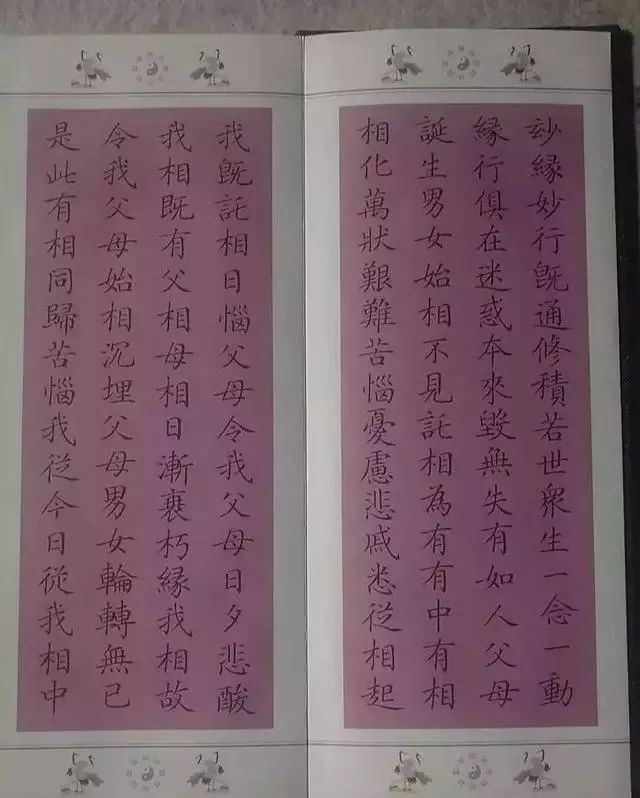 玅緣妙行旣通修積若世衆生一念一動
緣行俱在迷惑夲來毀無失有如人父母
誕生男女始相不見託相為有有中有相
相化萬狀艱難苦惱憂慮悲戚悉從相起
我旣託相日惱父母令我父母日夕悲酸
我相既有父相母相日漸衰朽緣我相故
令我父母始相沉埋父母男女輪轉無已
是此有相同歸苦惱我從今日從我相中